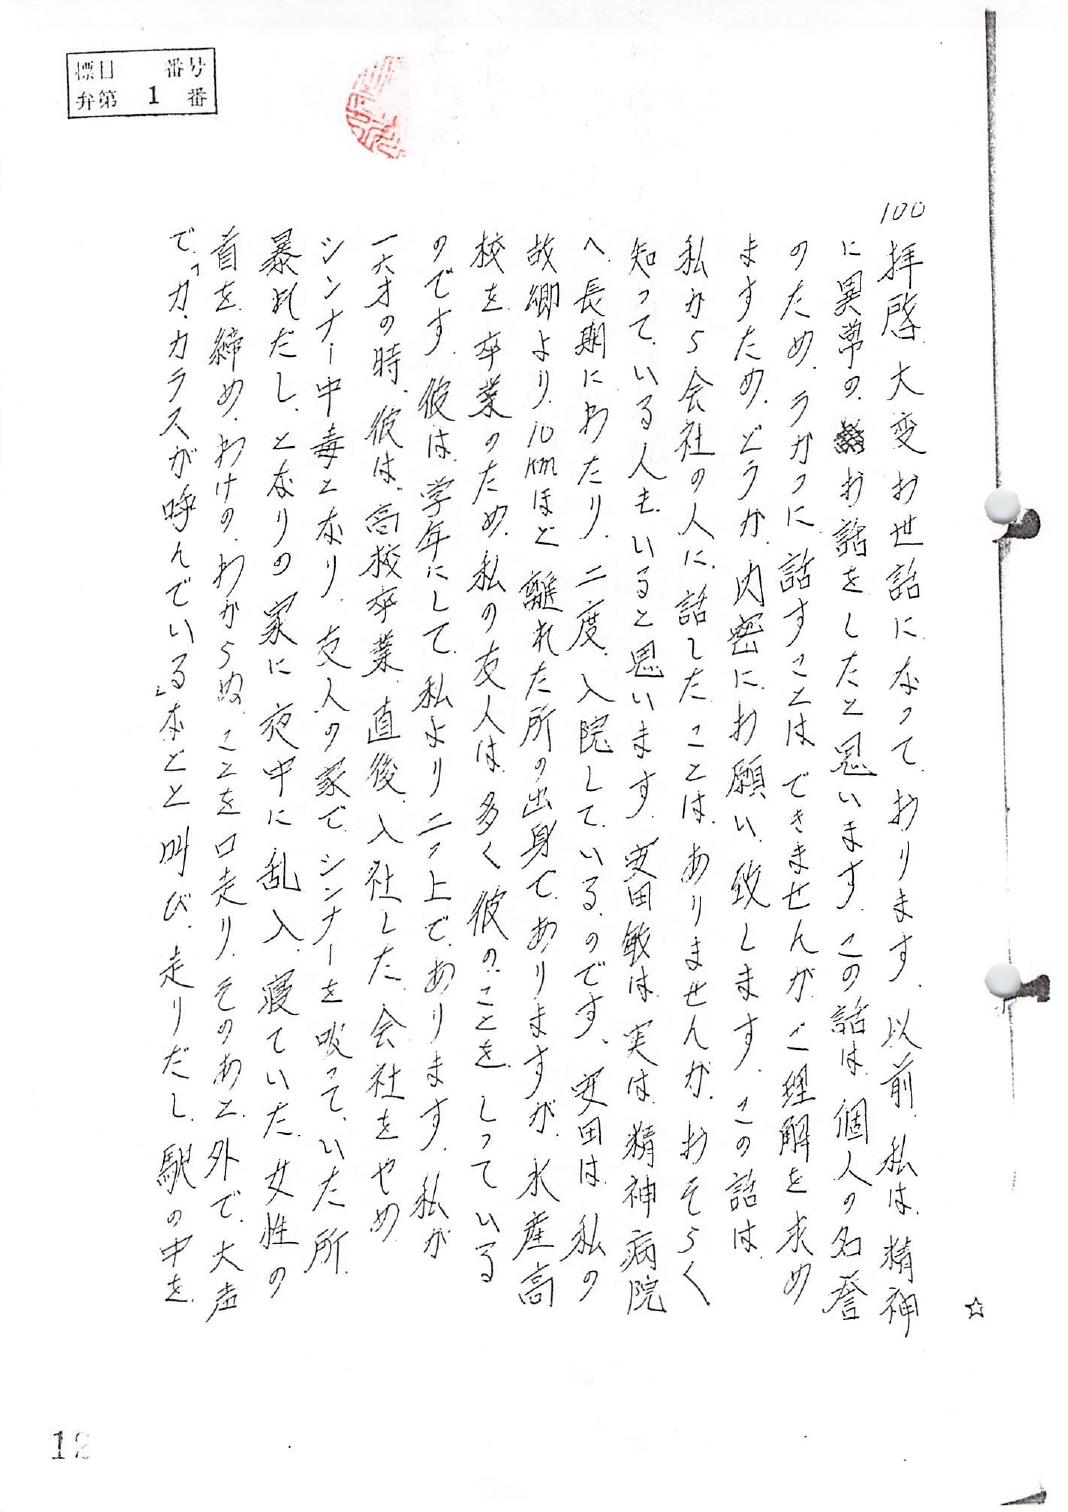 標目 番号
弁第 1 番
100
拝啓 大変お世話になって、おります。以前、私は、精神
に異常の、お話をしたと思います。この話は、個人の名誉
のため、うかつに話すことは、できませんが、ご理解を求め
ますため、どうか、内密に、お願い、致します。この話は、
私から会社の人に、話したことは、ありませんが、おそらく
知って、いる人も、いると思います。安田敏は、実は、精神病院
へ、長期にわたり、二度、入院して、いるのです。安田は、私の
故郷より、10kmほど、離れた所の出身で、ありますが、水産高
校を、卒業のため、私の友人は、多く彼の、ことを、しっている
のです。彼は、学年にして、私より二つ上で、あります。私が
一六才の時、彼は、高校卒業、直後、入社した、会社をやめ
シンナー中毒となり、友人の家で、シンナーを吸って、いた所、
暴れだし、となりの家に夜中に乱入、寝ていた、女性の
首を、締め、わけの、わからぬ、ことを口走り、そのあと、外で、大声
で、「カ、カラスが呼んでいる」などと叫び、走りだし、駅の中を、
☆
12